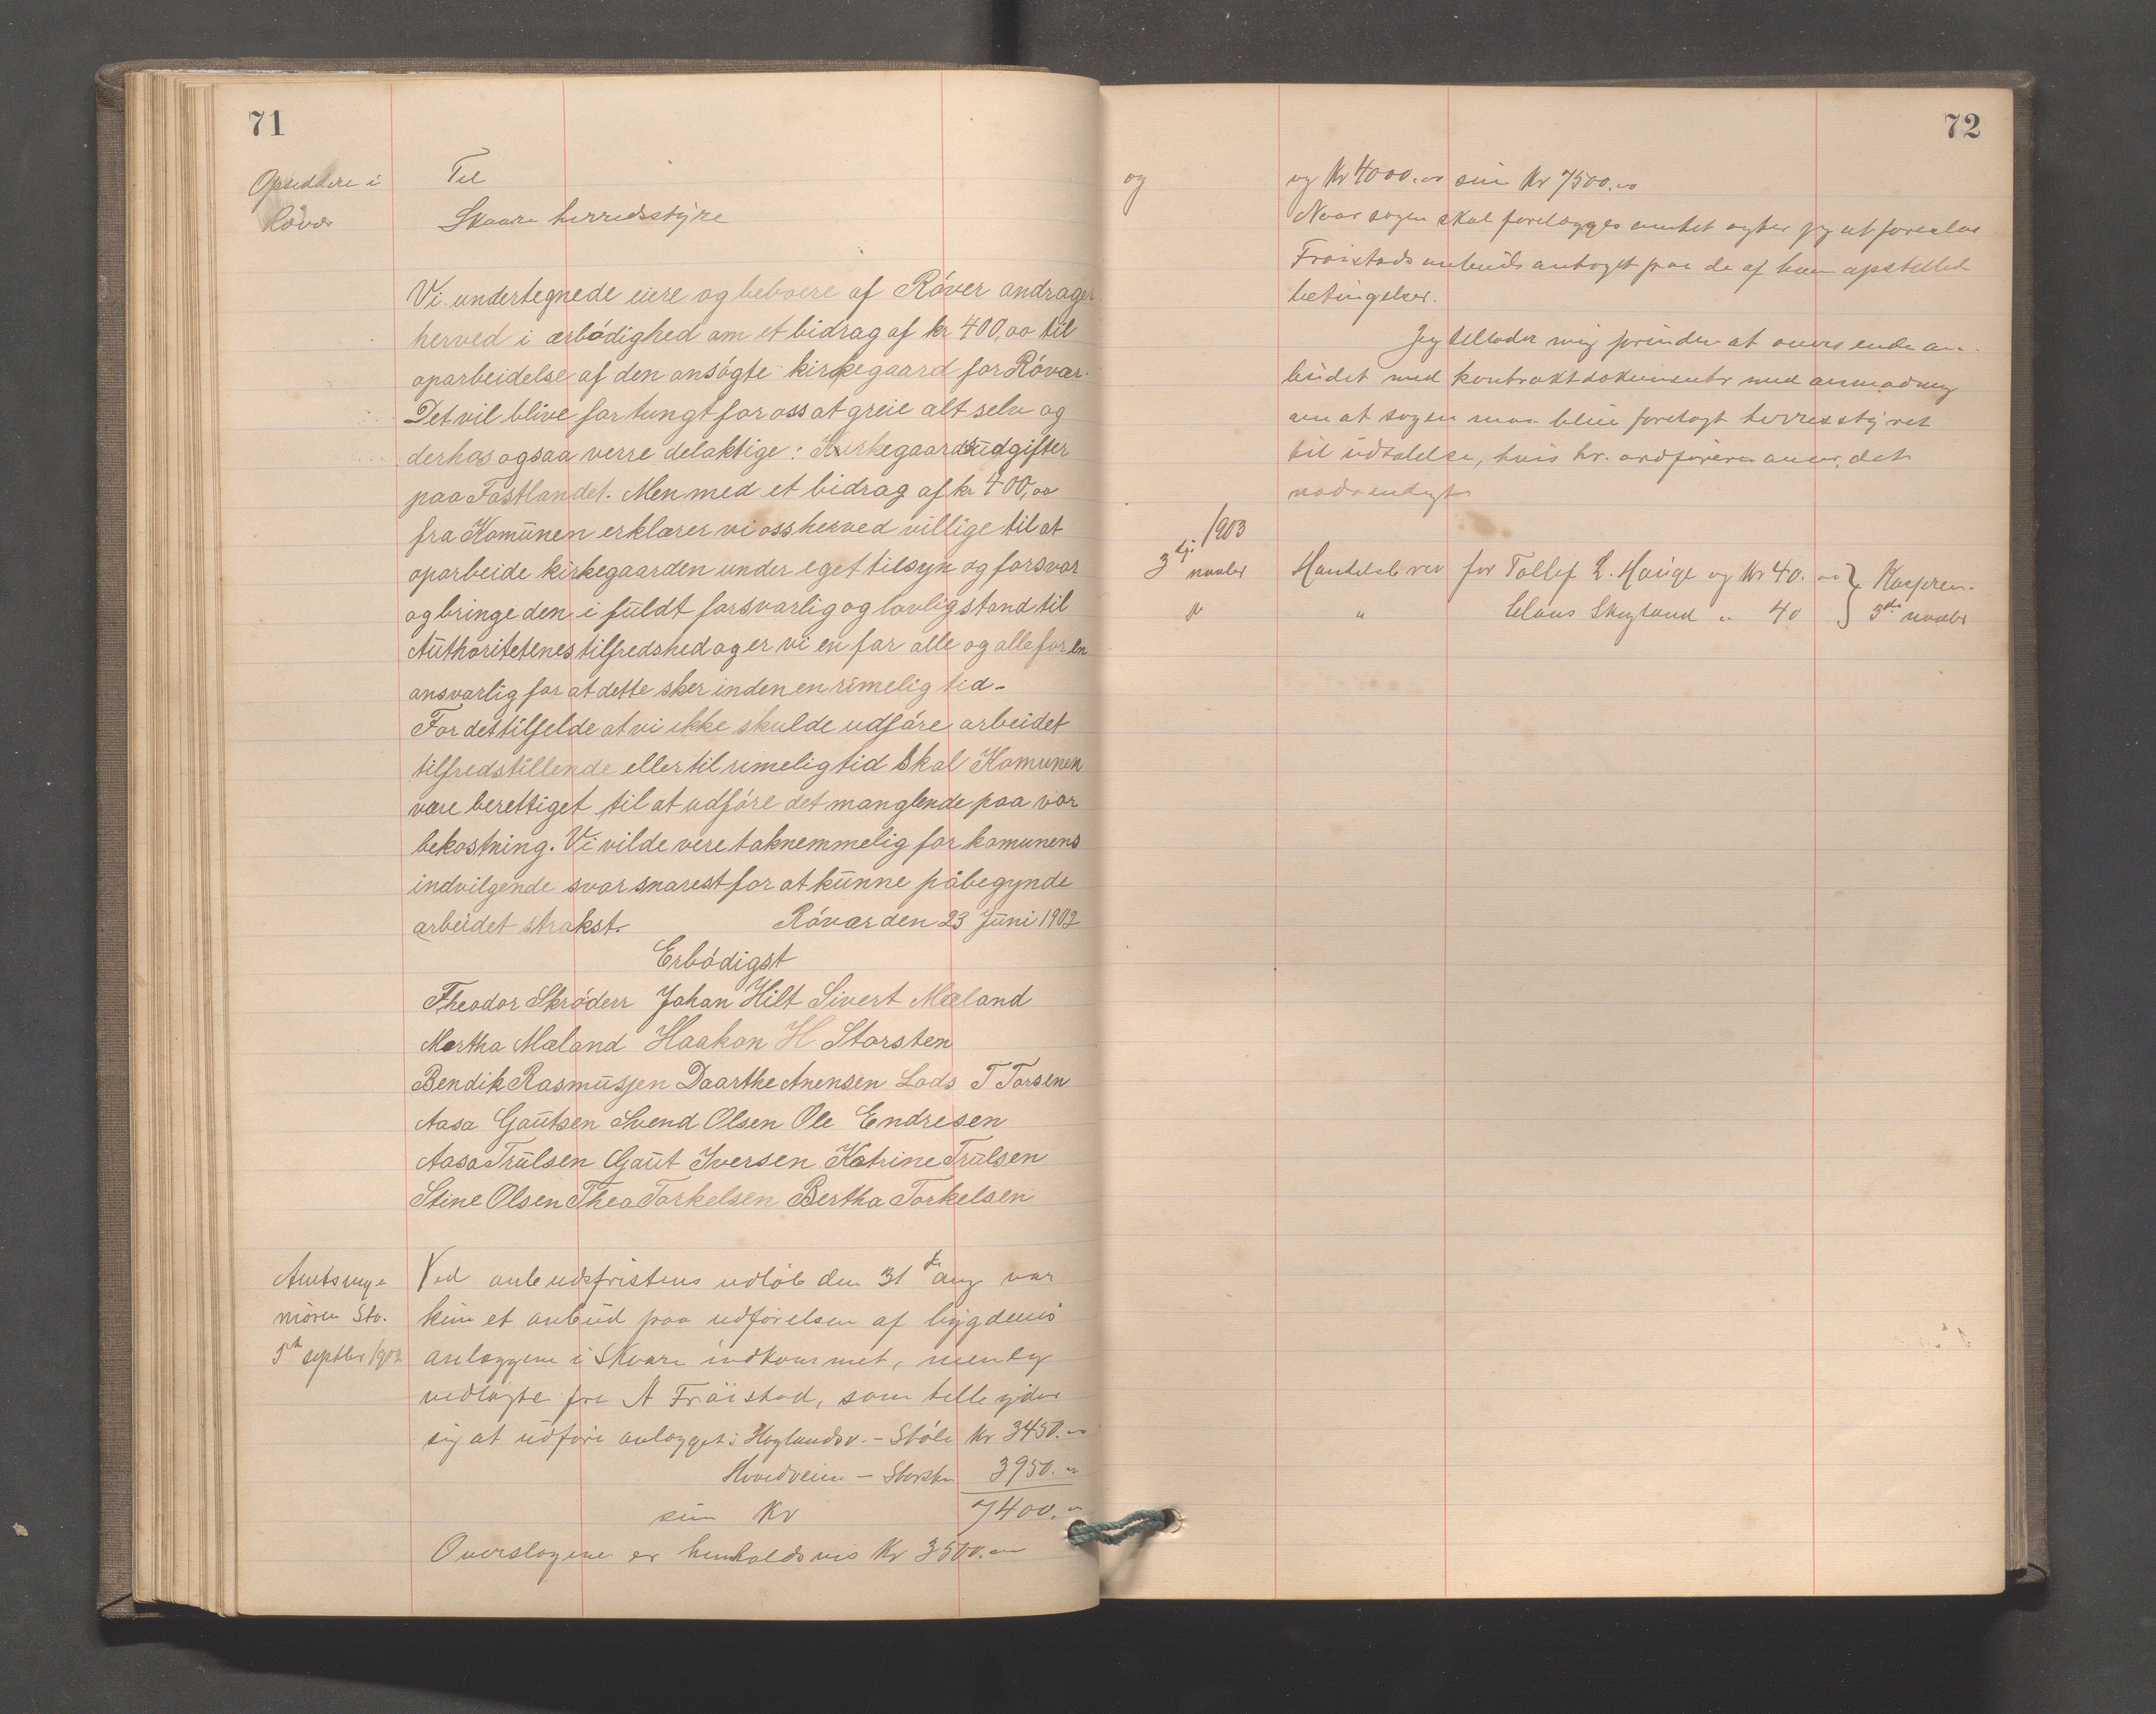 71
Opsiddere i
Røvær
Til
Skaare herredsstyre
Vi undertegnede eiere og beboere af Röver andrager
herved i ærbödighed om et bidrag af kr 400,00 til
oparbeidelse af den ansögte kirkegaard for Rövær.
Det vil blive for tungt for oss at greie alt selv og
derhos ogsaa verre delaktige: Kirkegaardsudgifter
paa Fastlandet. Men med et bidrag af kr 400,00
fra Komunen erklærer vi oss herved villige til at
oparbeide kirkegaarden under eget tilsyn og forsvar
og bringe den i fuldt forsvarlig og lovlig stand til
Authoritetenes tilfredshed og er vi en for alle og alle for en
ansvarlig for at dette sker inden en rimelig tid.
For det tilfelde at vi ikke skulde udføre arbeidet
tilfredstillende eller til rimelig tid Skal Komunen
være berettiget til at udföre det manglende paa vor
bekostning. Vi vilde vere taknemmelig for komunens
indvilgende svar snarest for at kunne påbegynde
arbeidet strakst. Rövær den 23 Juni 1902
Erbödigst
Theodor Skröder Johan Hilt Sivert Mæland
Martha Mæland Haakon H Storsten
Bendik Rasmussen Daarthe Anensen Lods T Torsen
Aasa Gautsen Svend Olsen Ole Endresen
Aasa Trulsen Gaut Iversen Katrine Trulsen
Stine Olsen Thea Torkelsen Bertha Torkelsen
Amtsinge-
niøren Stv.
5te septbr 1902
Ved anbudsfristens udløb den 31te aug var
kun et anbud paa udførelsen af bygdevei
anlæggene i Skaare indkommet, nemlig
vedlagte fra A Fröistad, som tilbyder
sig at udføre anlægget: Hoglandsv. - Stöle Kr 3450.00
Hovedveien - Storsten 3950.00
sum Kr 7400.00
Overslagene er henholdsvis Kr 3500.00
72
og
og Kr 4000.00 sum Kr 7500.00
Naar sagen skal forelægges amtet agter jeg at foreslaa
Fröistads anbud antaget paa de af ham opstillede
betingelser.
Jeg tillader mig forinden at oversende an-
budet med kontraktdokumenter med anmodning
om at sagen maa blive forelagt herredsstyret
til udtalelse, hvis hr. ordføreren anser det
nødvendigt
1903
3dje novbr
Handelsbrev for Tollef L. Hauge og Kr 40.00 } Kasseren.
" " Claus Skogland " 40 } 3die novbr